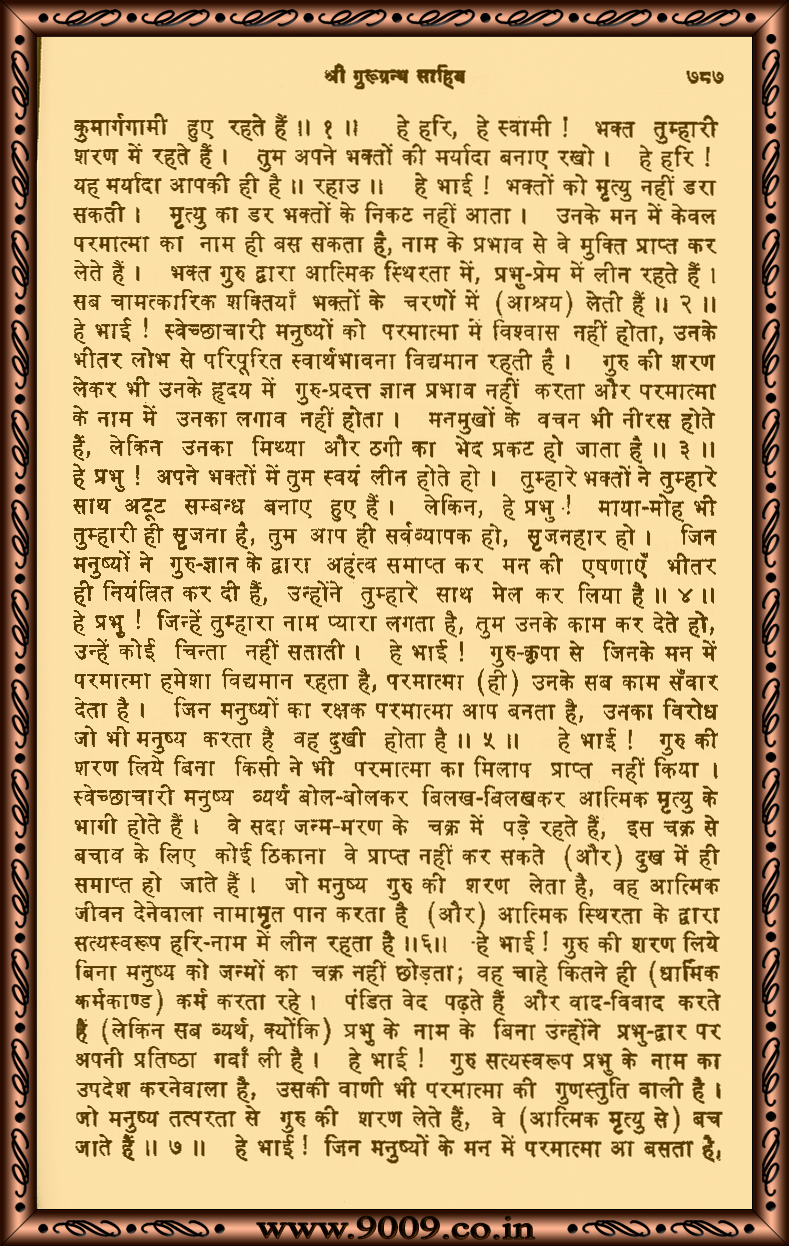 श्री गुरूग्रन्थ साहिब ७८७
कुमार्गगामी हुए रहते हैं ॥ १ ॥ हे हरि, हे स्वामी ! भक्त तुम्हारी
शरण में रहते हैं । तुम अपने भक्तों की मर्यादा बनाए रखो । हे हरि !
यह मर्यादा आपकी ही है ॥ रहाउ ॥ हे भाई ! भक्तों को मृत्यु नहीं डरा
सकती । मृत्यु का डर भक्तों के निकट नहीं आता । उनके मन में केवल
परमात्मा का नाम ही बस सकता है, नाम के प्रभाव से वे मुक्ति प्राप्त कर
लेते हैं । भक्त गुरु द्वारा आत्मिक स्थिरता में, प्रभु-प्रेम में लीन रहते हैं ।
सब चामत्कारिक शक्तियाँ भक्तों के चरणों में (आश्रय) लेती हैं ॥ २ ॥
हे भाई ! स्वेच्छाचारी मनुष्यों को परमात्मा में विश्वास नहीं होता, उनके
भीतर लोभ से परिपूरित स्वार्थभावना विद्यमान रहती है । गुरु की शरण
लेकर भी उनके हृदय में गुरु-प्रदत्त ज्ञान प्रभाव नहीं करता और परमात्मा
के नाम में उनका लगाव नहीं होता । मनमुखों के वचन भी नीरस होते
हैं, लेकिन उनका मिथ्या और ठगी का भेद प्रकट हो जाता है ॥ ३ ॥
हे प्रभु ! अपने भक्तों में तुम स्वयं लीन होते हो । तुम्हारे भक्तों ने तुम्हारे
साथ अटूट सम्बन्ध बनाए हुए हैं । लेकिन, हे प्रभु ! माया-मोह भी
तुम्हारी ही सृजना है, तुम आप ही सर्वव्यापक हो, सृजनहार हो । जिन
मनुष्यों ने गुरु-ज्ञान के द्वारा अहंत्व समाप्त कर मन की एषणाएँ भीतर
ही नियंत्रित कर दी हैं, उन्होंने तुम्हारे साथ मेल कर लिया है ॥ ४ ॥
हे प्रभु ! जिन्हें तुम्हारा नाम प्यारा लगता है, तुम उनके काम कर देते हो,
उन्हें कोई चिन्ता नहीं सताती । हे भाई ! गुरु-कृपा से जिनके मन में
परमात्मा हमेशा विद्यमान रहता है, परमात्मा (ही) उनके सब काम सँवार
देता है । जिन मनुष्यों का रक्षक परमात्मा आप बनता है, उनका विरोध
जो भी मनुष्य करता है वह दुखी होता है ॥ ५ ॥ हे भाई ! गुरु की
शरण लिये बिना किसी ने भी परमात्मा का मिलाप प्राप्त नहीं किया ।
स्वेच्छाचारी मनुष्य व्यर्थ बोल-बोलकर बिलख-बिलखकर आत्मिक मृत्यु के
भागी होते हैं । वे सदा जन्म-मरण के चक्र में पड़े रहते हैं, इस चक्र से
बचाव के लिए कोई ठिकाना वे प्राप्त नहीं कर सकते (और) दुख में ही
समाप्त हो जाते हैं । जो मनुष्य गुरु की शरण लेता है, वह आत्मिक
जीवन देनेवाला नामामृत पान करता है (और) आत्मिक स्थिरता के द्वारा
सत्यस्वरूप हरि-नाम में लीन रहता है ॥६॥ हे भाई ! गुरु की शरण लिये
बिना मनुष्य को जन्मों का चक्र नहीं छोड़ता; वह चाहे कितने ही (धार्मिक
कर्मकाण्ड) कर्म करता रहे । पंडित वेद पढ़ते हैं और वाद-विवाद करते
हैं (लेकिन सब व्यर्थ, क्योंकि) प्रभु के नाम के बिना उन्होंने प्रभु-द्वार पर
अपनी प्रतिष्ठा गवाँ ली है । हे भाई ! गुरु सत्यस्वरूप प्रभु के नाम का
उपदेश करनेवाला है, उसकी वाणी भी परमात्मा की गुणस्तुति वाली है ।
जो मनुष्य तत्परता से गुरु की शरण लेते हैं, वे (आत्मिक मृत्यु से) बच
जाते हैं ॥ ७ ॥ हे भाई ! जिन मनुष्यों के मन में परमात्मा आ बसता है,
www.9009.co.in